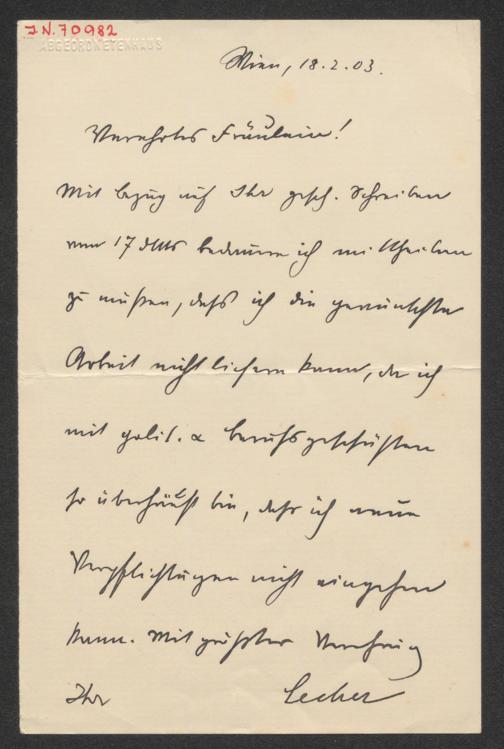 J.N. 70982
ABGEORDNETENHAUS
Wien, 18.2.03.
Verehrtes Fräulein!
Mit bezug auf Ihr gesch. Schreiben
vom 17 dMts bedauere ich mittheilen
zu müssen, daß ich die gewünschte
Arbeit nicht liefern kann, da ich
mit polit. & berufsgeschäften
so überhäuft bin, daß ich neue
Verpflichtungen nicht eingehen
kann. Mit größter Verehrung
Ihr Lecher